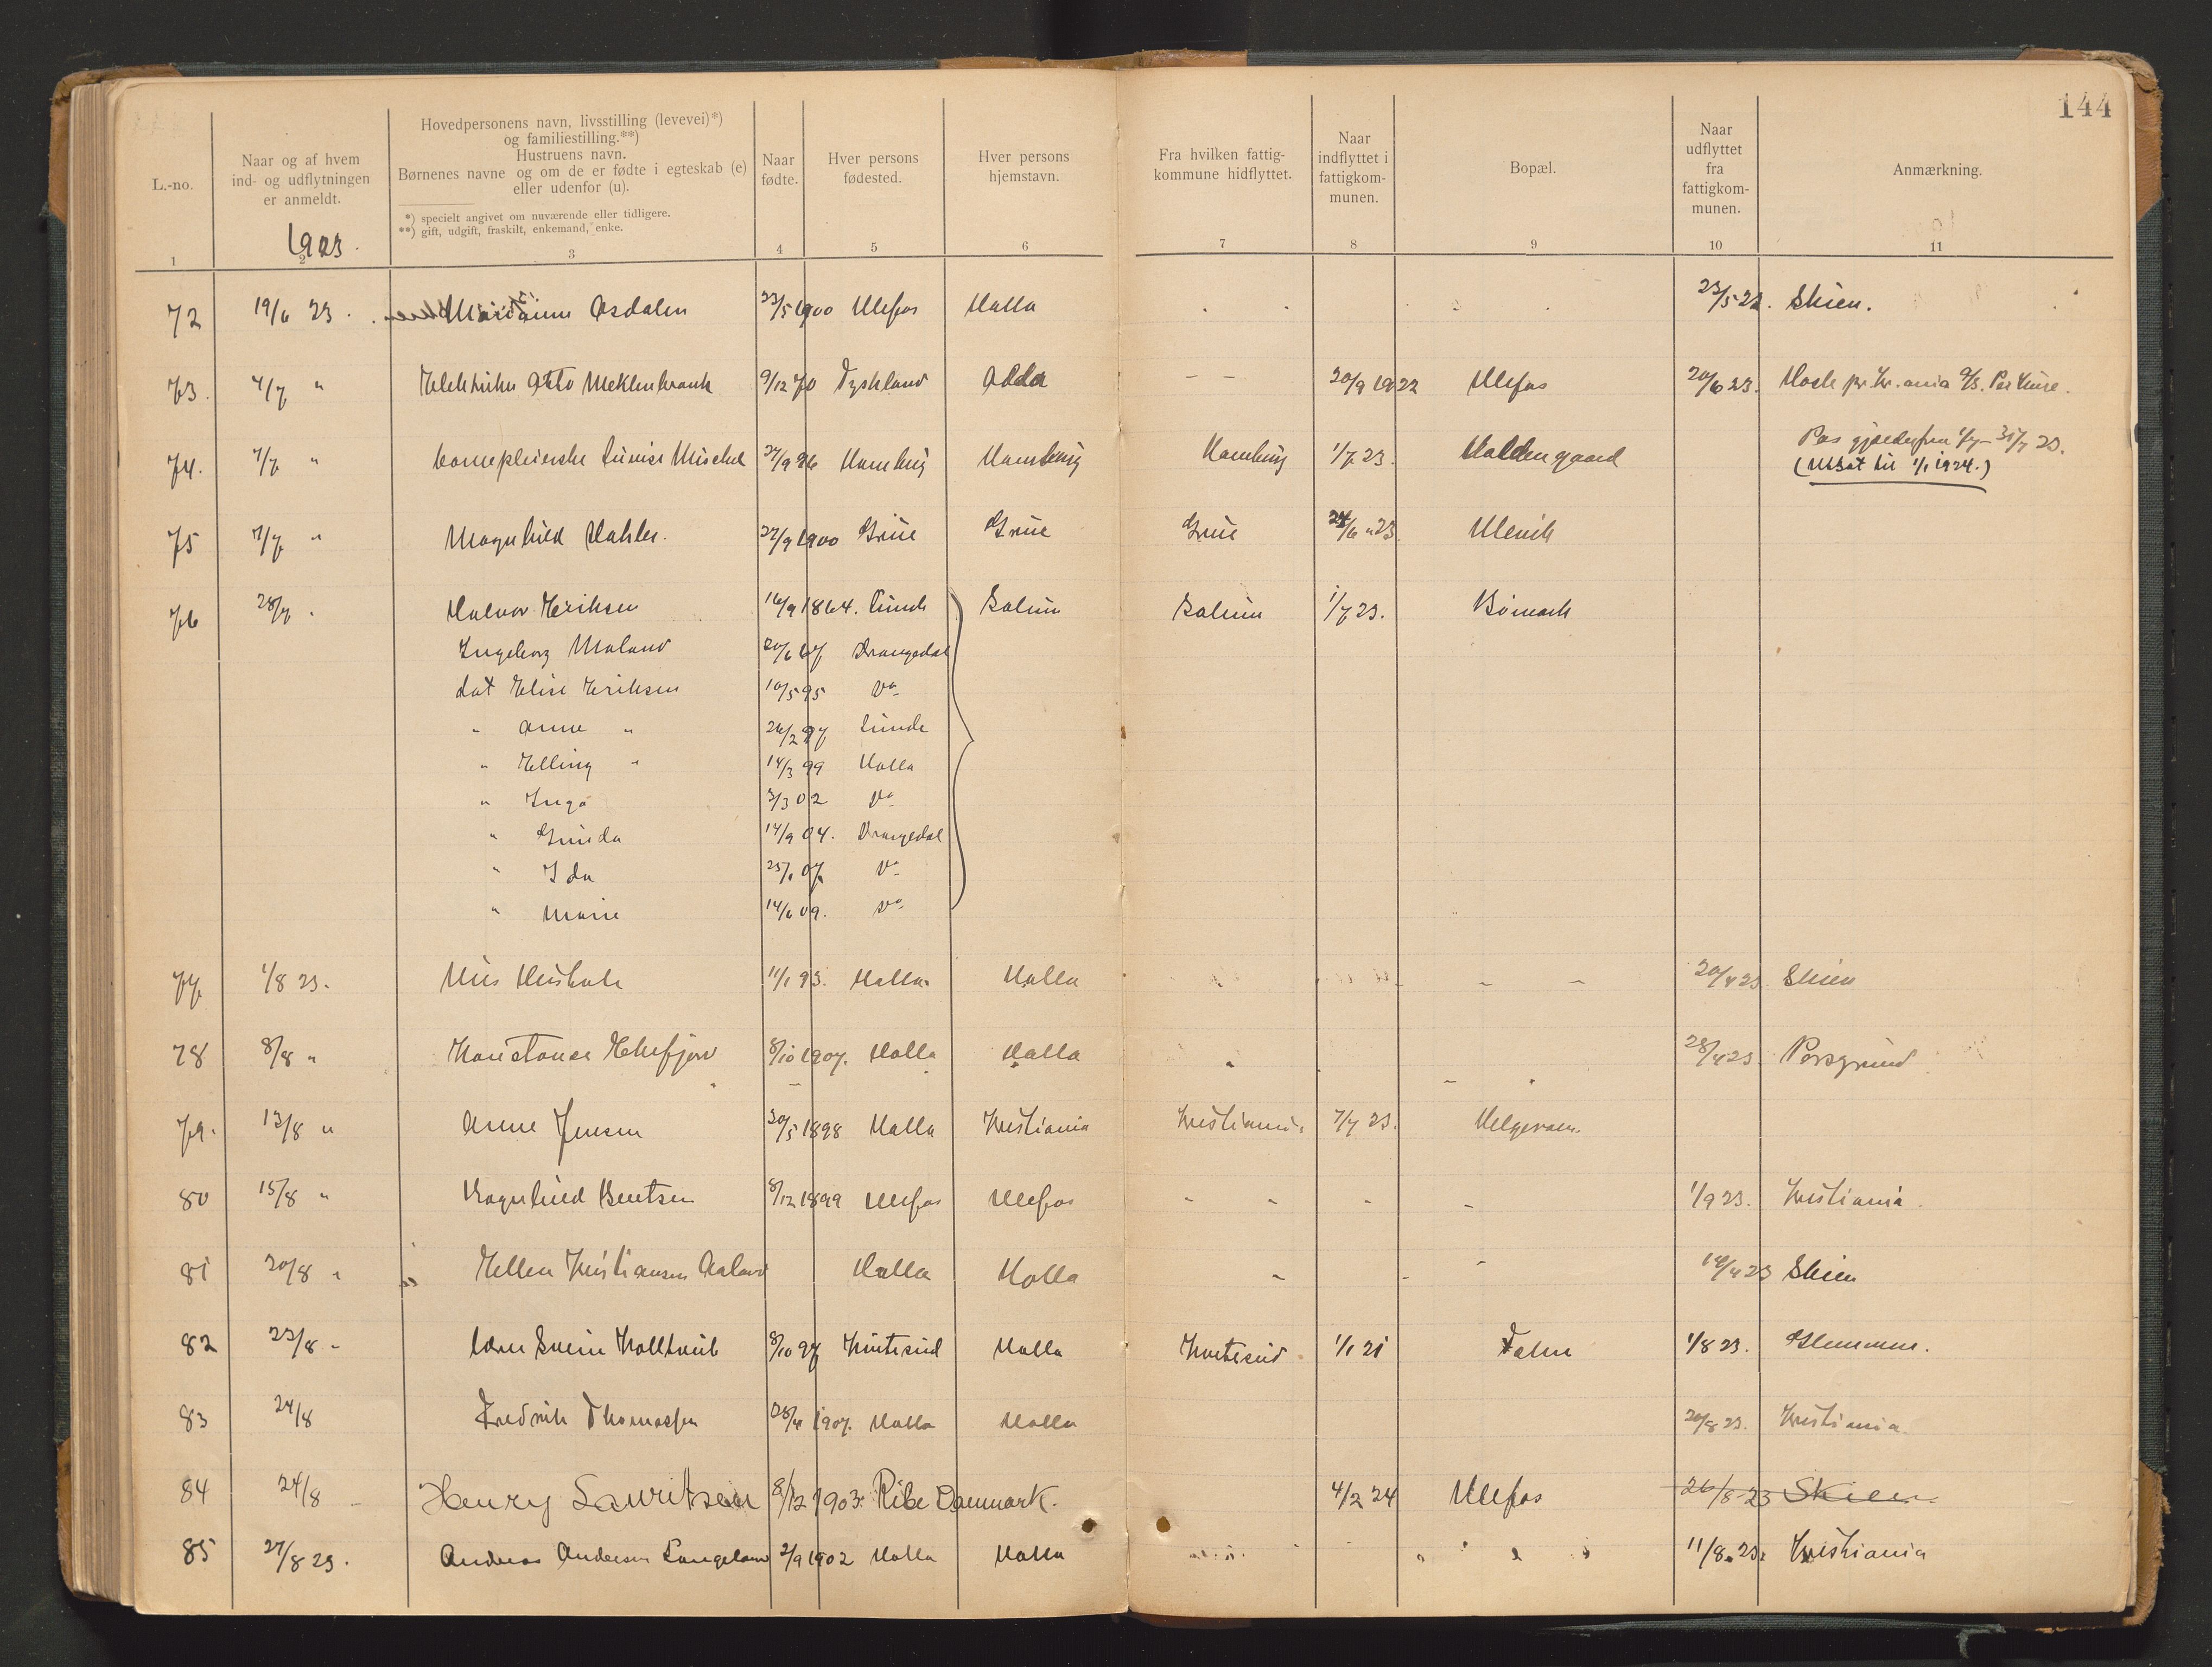 144
L.-no.
Naar og af hvem
ind- og udflytningen
er anmeldt.
1923.
Hovedpersonens navn, livsstilling (levevei)*)
og familiestilling.**)
Hustruens navn.
Børnenes navne og om de er fødte i egteskab (e)
eller udenfor (u).
*) specielt angivet om nuværende eller tidligere.
**) gift, udgift, fraskilt, enkemand, enke.
Naar
fødte.
Hver persons
fødested.
Hver persons
hjemstavn.
Fra hvilken fattig-
kommune hidflyttet.
Naar
indflyttet i
fattigkom-
munen.
Bopæl.
Naar
udflyttet
fra
fattigkom-
munen.
Anmærkning.
1 2 3 4 5 6 7 8 9 10 11
72 19/6 23. Asdalen 23/5 1900 Ulefos Holla 23/5 23. Skien.
73. 4/7 " Otto 9/12 70 Tyskland Odda - - 20/9 1922 Ulefos 20/6 23.
74. 7/7 " 27/9 Hamburg Hamburg Hamburg 1/7 23. Holdengaard Pas 1/7 - 31/7 23.
(Utsat til 1/1 1924.)
75 7/7 " Magnhild 27/9 1900 Grue Grue Grue 24/6 - 23. Ulevik
76 28/7 " Halvor Eriksen 16/9 1864. Lunde Solum Solum 1/7 23.
Ingeborg 20/6 67 Drangedal
dat Elise Eriksen 10/5 95 Do
" Anne " 26/2 97 Lunde
" Elling " 14/3 99 Holla
" Inga 3/3 02 Do
" Gunda 14/9 04. Drangedal
" Ida 25/1 07 Do
" Marie 14/6 09. Do
77. 1/8 23. Nils 11/1 93. Holla Holla 20/4 23 Skien
78 8/8 " Konstanse 8/10 1907. Holla Holla 28/4 23 Porsgrund
79. 13/8 " Anne Jensen 30/5 1898 Holla Kristiania Kristiania 7/7 23. Helgeraen.
80 15/8 " Ragnhild Bentsen 8/12 1899 Ulefos Ulefos 1/9 23. Kristiania.
81 20/8 " Ellen Kristiansen Aaland Holla Holla 14/4 23 Skien
82 23/8 - Svein 8/10 97 Kviteseid Holla Kviteseid 1/1 21 1/8 23. Glemmen.
83 24/8 Fredrik Thomassen 28/4 1907. Holla Holla 20/8 23. Kristiania.
84 24/8 - Henry Lauritsen 8/12 1903. Ribe Danmark. 4/2 24 Ulefos 26/8-23 Skien.
85 27/8 23. Andreas Andersen Langeland 2/9 1902 Holla Holla 11/8. 23. Kristiania